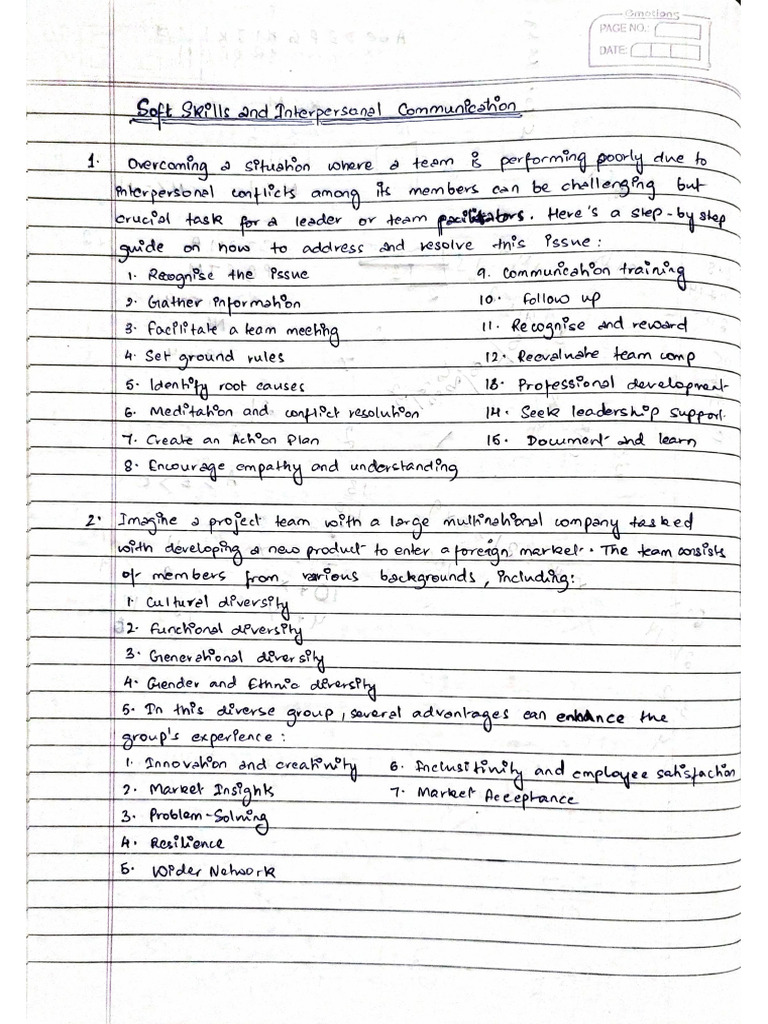 Emotions
PAGE NO.:
DATE:
Soft Skills and Interpersonal Communication
1. Overcoming a situation where a team is performing poorly due to
interpersonal conflicts among its members can be challenging but
crucial task for a leader or team facilitators. Here's a step-by step
guide on how to address and resolve this issue:
1. Recognise the issue
2. Gather information
3. Facilitate a team meeting
4. Set ground rules
5. Identify root causes
6. Meditation and conflict resolution
7. Create an Action Plan
8. Encourage empathy and understanding
9. Communication training
10. Follow up
11. Recognise and reward
12. Reevaluate team comp
13. Professional development
14. Seek leadership support.
15. Document and learn
2. Imagine a project team with a large multinational company tasked
with developing a new product to enter a foreign market. The team consists
of members from various backgrounds, including:
1. Cultural diversity
2. Functional diversity
3. Generational diversity
4. Gender and Ethnic diversity
5. In this diverse group, several advantages can enhance the
group's experience:
1. Innovation and creativity
2. Market Insights
3. Problem-Solving
4. Resilience
5. Wider Network
6. Inclusitivity and employee satisfaction
7. Market Acceptance